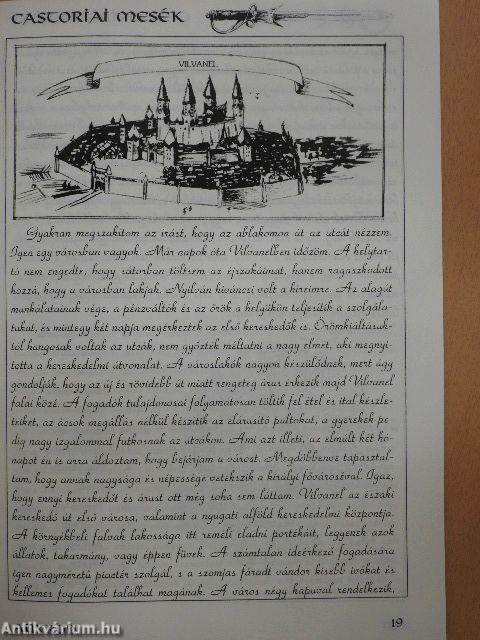 CASTORIAI MESÉK
VILVANEL
Gyakran megszakítom az írást, hogy az ablakomon át az utcát nézzem.
Igen egy városban vagyok. Már napok óta Vilvanelben időzöm. A helytar-
tó nem engedte, hogy sátorban töltsem az éjszakáimat, hanem ragaszkodott
hozzá, hogy a városban lakjak. Nyilván kíváncsi volt a híreimre. Az alagút
munkálatainak vége, a pénzváltók és az őrök a helyükön teljesítik a szolgála-
tukat, és mintegy két napja megérkeztek az első kereskedők is. Örömkiáltásuk-
tól hangosak voltak az utcák, nem győzték méltatni a nagy elmét, aki megnyi-
totta a kereskedelmi útvonalat. A városlakók nagyon készülődnek, mert úgy
gondolják, hogy az új és rövidebb út miatt rengeteg árus érkezik majd Vilvanel
falai közé. A fogadók tulajdonosai folyamatosan töltik fel étel és ital készle-
teiket, az ácsok megállás nélkül készítik az elárusító pultokat, a gyerekek pe-
dig nagy izgalommal futkosnak az utcákon. Ami azt illeti, az elmúlt két hó-
napot én is arra áldoztam, hogy bejárjam a várost. Megdöbbenve tapasztal-
tam, hogy annak nagysága és népessége vetekszik a királyi fővároséval. Igaz,
hogy ennyi kereskedőt és árust ott még soha sem láttam. Vilvanel az északi
kereskedő út első városa, valamint a nyugati alföld kereskedelmi központja.
A környékbeli falvak lakossága itt reméli eladni portékáit, legyenek azok
állatok, takarmány, vagy éppen füvek. A számtalan ideérkező fogadására
igen nagyméretű piactér szolgál, s a szomjas fáradt vándor kisebb ivókat és
kellemes fogadókat találhat magának. A város négy kapuval rendelkezik,
19
Antikvárium.hu